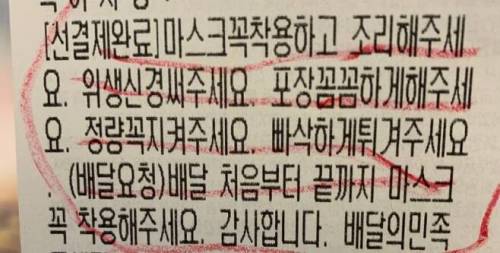 [선결제완료]마스크꼭착용하고 조리해주세
요. 위생신경써주세요. 포장꼼꼼하게해주세
요. 정량꼭지켜주세요. 빠삭하게튀겨주세요
. (배달요청)배달 처음부터 끝까지 마스크
꼭 착용해주세요. 감사합니다. 배달의민족